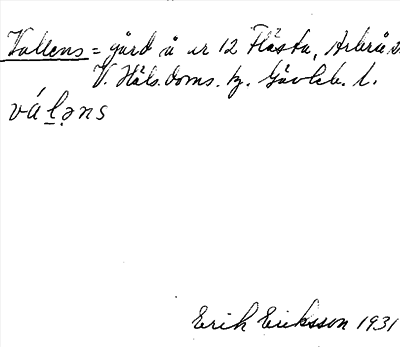 Vallens = gård å nr 12 Flästa, Arbrå s.
V. Häls. doms. tg. Gävleb. l.
váḷəns
Erik Eriksson 1931